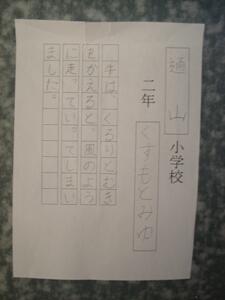 道山小学校
二年 くすもとみゆ
牛は、くるりとむき
をかえると、風のよう
に走っていってしまい
ました。